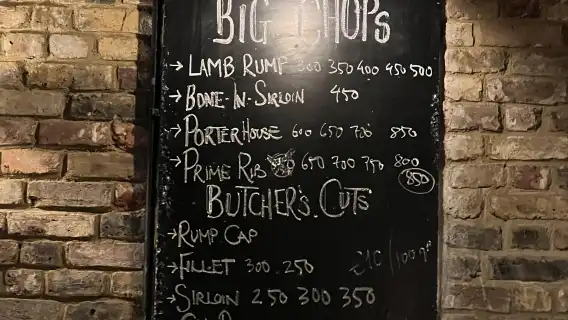 BIG CHOPS
→ LAMB RUMP 300 350 400 450 500
→ BONE-IN-SIRLOIN 450
→ PORTERHOUSE 600 650 700 850
→ PRIME RIB 650 700 750 800
850
BUTCHER'S CUTS
→ RUMP CAP
→ FILLET 300 250 £10/100gr
→ SIRLOIN 250 300 350